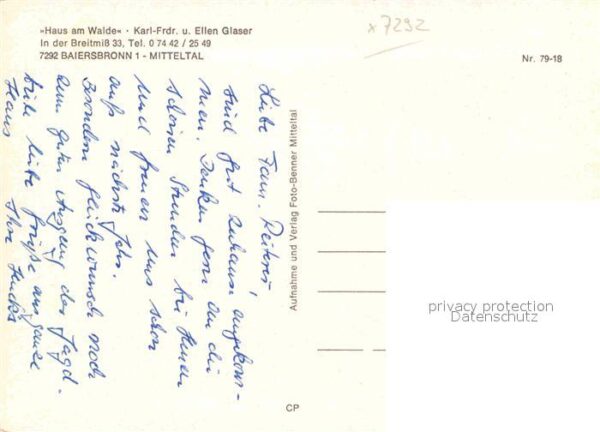 »Haus am Walde« · Karl-Frdr. u. Ellen Glaser
In der Breitmiß 33, Tel. 0 74 42 / 25 49
7292 BAIERSBRONN 1 - MITTELTAL
x 7292
Nr. 79-18
Liebe Fam.
sind gut zuhause angekom-
men. Denken gern an die
schönen Stunden bei Ihnen
und freuen uns schon
aufs nächste Jahr.
Besondern Glückwunsch noch
zum guten Ausgang der Jagd.
Viele liebe Grüße ans ganze
Haus Ihre
Aufnahme und Verlag Foto-Benner Mitteltal
privacy protection
Datenschutz
CP